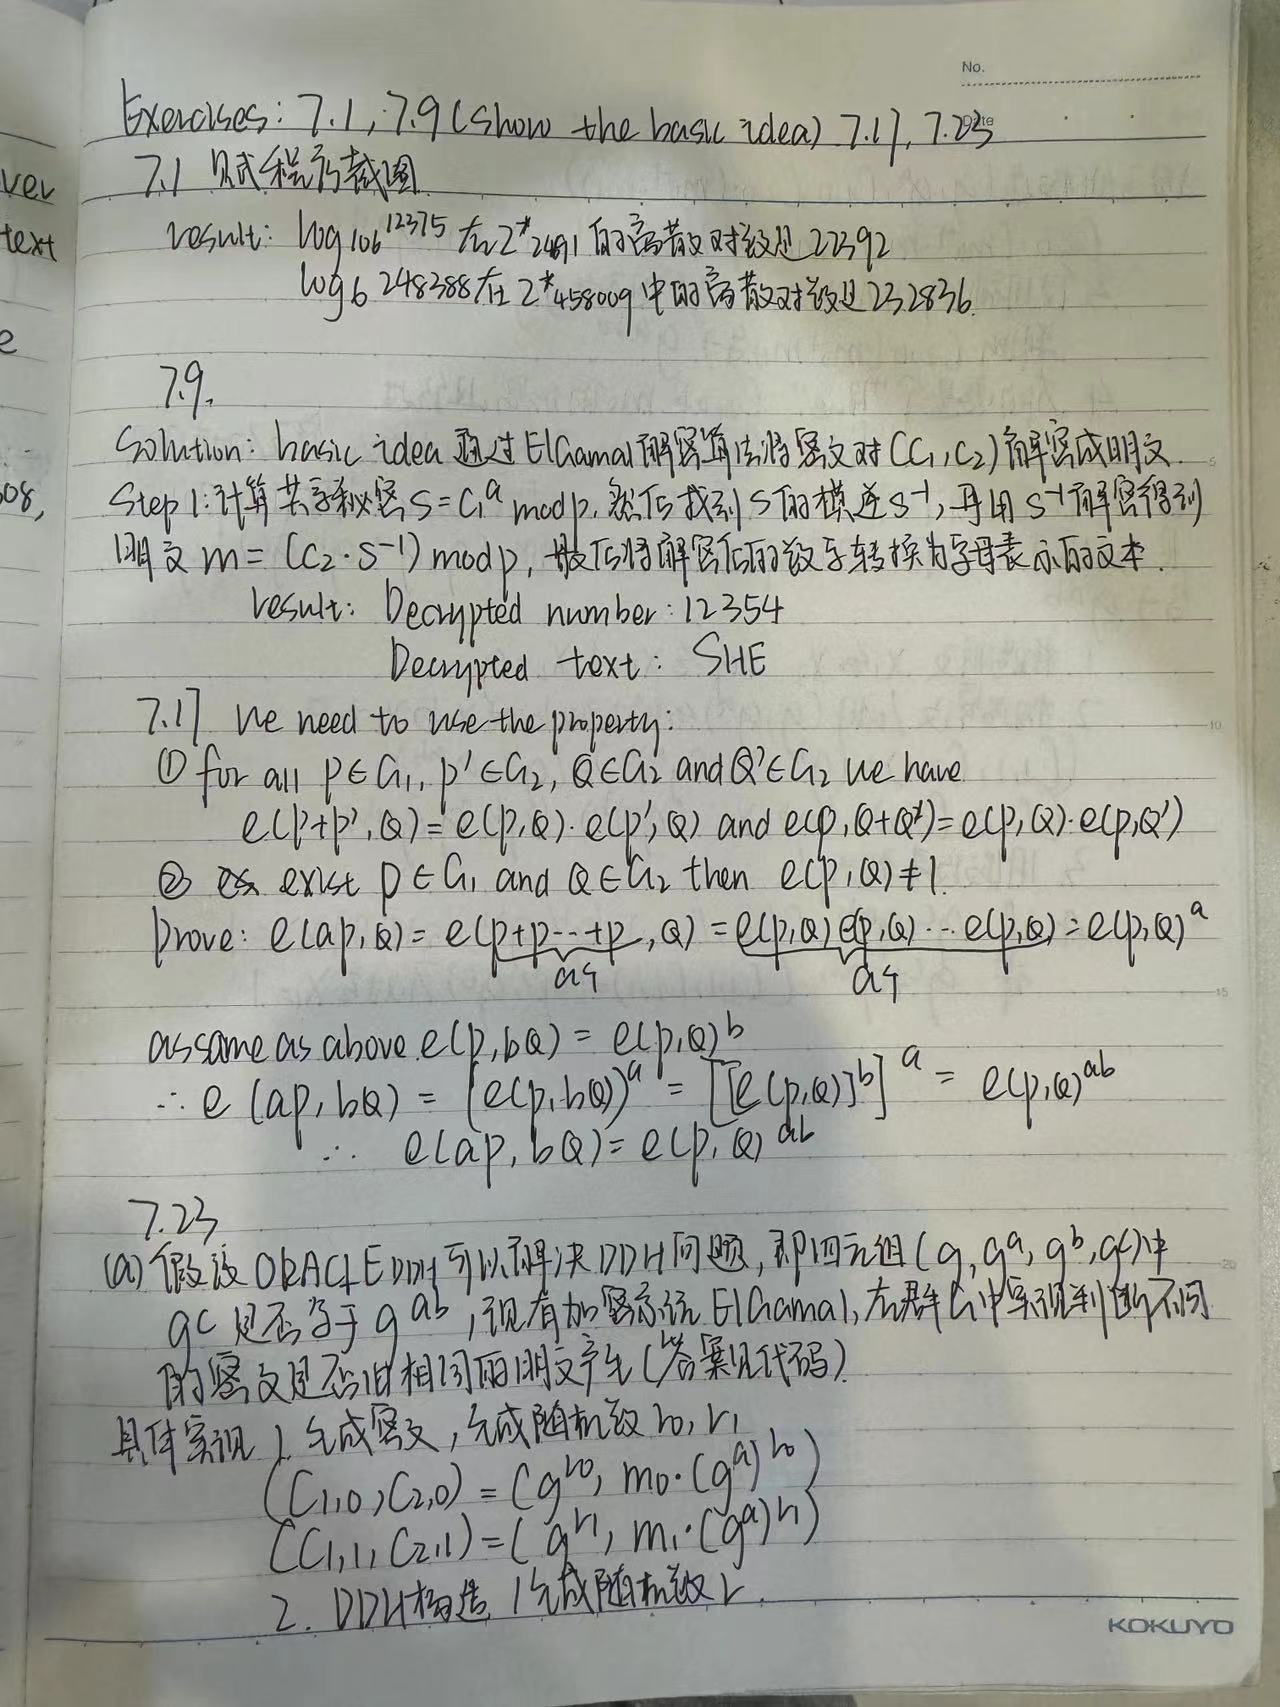 No.
Date
Exercises: 7.1, 7.9 (show the basic idea) 7.17, 7.23
7.1 见程序截图
result: log106 12375 在Z*24691的离散对数是22392
log6 248388在Z*458009中的离散对数是232836.
7.9.
Solution: basic idea 通过ElGamal解密算法将密文对(C1, C2)解密成明文.
Step 1:计算共享秘密S=C1^a mod p, 然后找到S的模逆S^-1, 再用S^-1解密得到
明文 m = (C2·S^-1) mod p, 最后将解密后的数字转换为字母表示的文本.
result: Decrypted number: 12354
Decrypted text: SHE
7.17 We need to use the property:
① for all P∈G1, P'∈G2, Q∈G2 and Q'∈G2 we have
e(P+P', Q) = e(P,Q)·e(P',Q) and e(P, Q+Q') = e(P,Q)·e(P,Q')
② exist P∈G1 and Q∈G2 then e(P,Q)≠1.
Prove: e(aP,Q) = e(P+P…+P, Q) = e(P,Q) e(P,Q) … e(P,Q) = e(P,Q)^a
a个 a个
as same as above. e(P,bQ) = e(P,Q)^b
∴ e(aP, bQ) = [e(P,bQ)]^a = [[e(P,Q)]^b]^a = e(P,Q)^ab
∴ e(aP, bQ) = e(P,Q)^ab
7.23
(a) 假设ORACLE DDH可以解决DDH问题, 即四元组(g, g^a, g^b, g^c)中
g^c是否等于g^ab, 现有加密系统ElGamal, 在群G中实现判断不同
的密文是否由相同的明文产生(答案见代码).
具体实现 1. 生成密文, 生成随机数r0, r1
(C1,0, C2,0) = (g^r0, m0·(g^a)^r0)
(C1,1, C2,1) = (g^r1, m1·(g^a)^r1)
2. DDH构造 生成随机数r.
KOKUYO
ver
text
e
508,